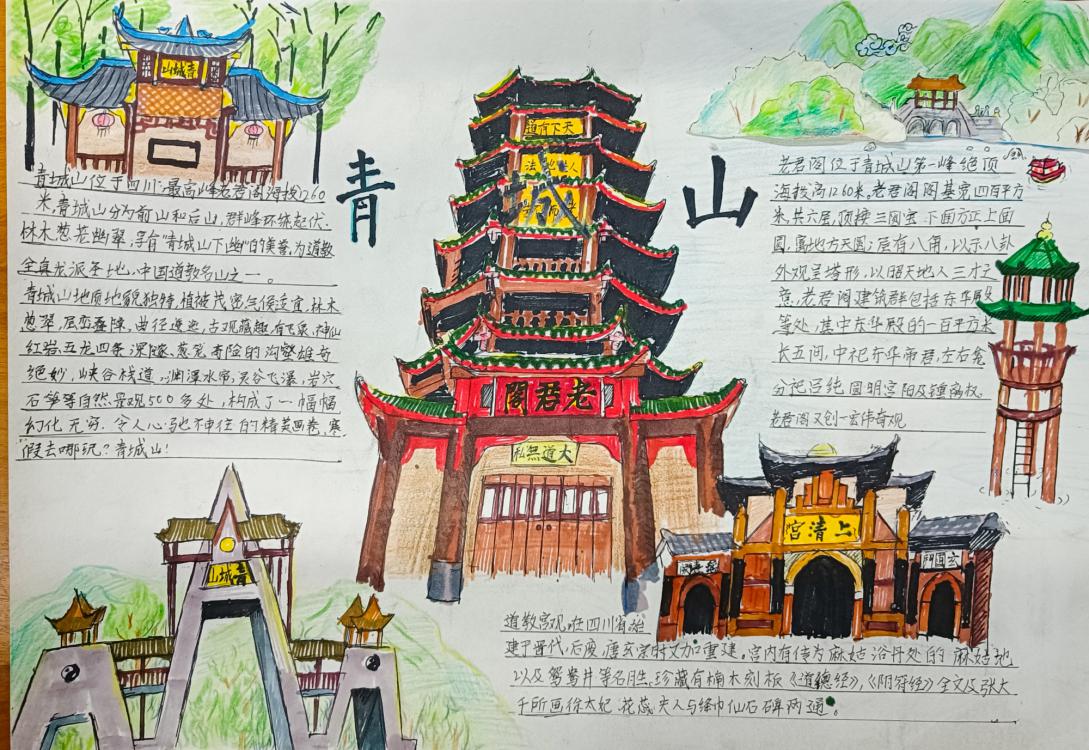 青城山
青 城 山
青城山位于四川,最高峰老君阁海拔1260
米,青城山分为前山和后山,群峰环绕起伏.
林木葱茏幽翠,享有"青城山下幽"的美誉.为道教
全真龙派圣地.中国道教名山之一.
青城山地质地貌独特,植被茂密气候适宜,林木
葱翠,层峦叠障,曲径逶迤,古观藏趣,有飞泉.神仙
红岩.五龙四条深隧.葱笼奇险的沟壑雄奇
绝妙,峡谷栈道,渊潭水帘,灵谷飞瀑,岩穴
石笋等自然景观500多处,构成了一幅幅
幻化无穷.令人心驰神往的精美画卷,寒
假去哪玩?青城山!
天下有道
人法
老君閣
大道無私
老君阁位于青城山第一峰绝顶
海拔高1260米.老君阁阁基宽四百平方
米,共六层,顶接三圆宝.下面方正上面
圆,寓地方天圆;层有八角,以示八卦
外观呈塔形,以昭天地人三才之
意,老君阁建筑群包括东华殿
等处,其中东华殿的一百平方米
长五间,中祀东华帝君,左右龛
分祀吕纯 圆明宫阳及锺离权.
老君阁又创一宏伟奇观
青城山
上清宫
玄圆門
道教宫观,在四川省
建于晋代,后废,唐玄宗时又加重建,宫内有传为麻姑浴丹处的麻姑池
以及鸳鸯井等名胜.珍藏有楠木刻板《道德经》,《阴符经》全文及张大
千所画徐太妃 花蕊夫人与绛巾仙石碑两通。